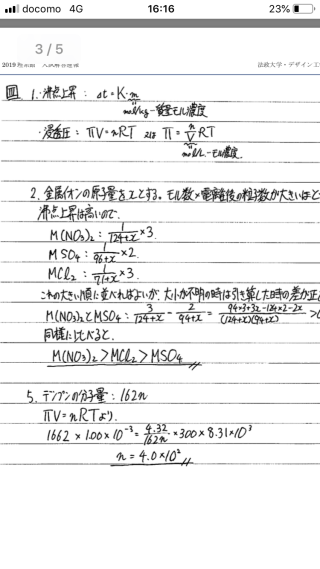 docomo 4G 16:16 23%
3 / 5
法政大学・デザイン工
III 1.・沸点上昇: Δt=K・m
mol/kg-質量モル濃度
・浸透圧: ΠV=nRT または Π=n/V RT
mol/L-モル濃度.
2. 金属イオンの原子量をxとする。モル数×電離後の粒子数が大きいほど
沸点上昇は高いので.
M(NO3)2: 1/(124+x)×3
MSO4: 1/(96+x)×2
MCl2: 1/(71+x)×3.
これの大きい順に並べればよいが、大小が不明の時は引き算した時の差が正
M(NO3)2とMSO4: 3/(124+x) - 2/(94+x) = (94×3+3x-124×2-2x)/((124+x)(94+x)) >
同様に比べると.
M(NO3)2>MCl2>MSO4
5. デンプンの分子量: 162n
ΠV=nRTより.
1662×1.00×10^-3=4.32/162n×300×8.31×10^3
n=4.0×10^2